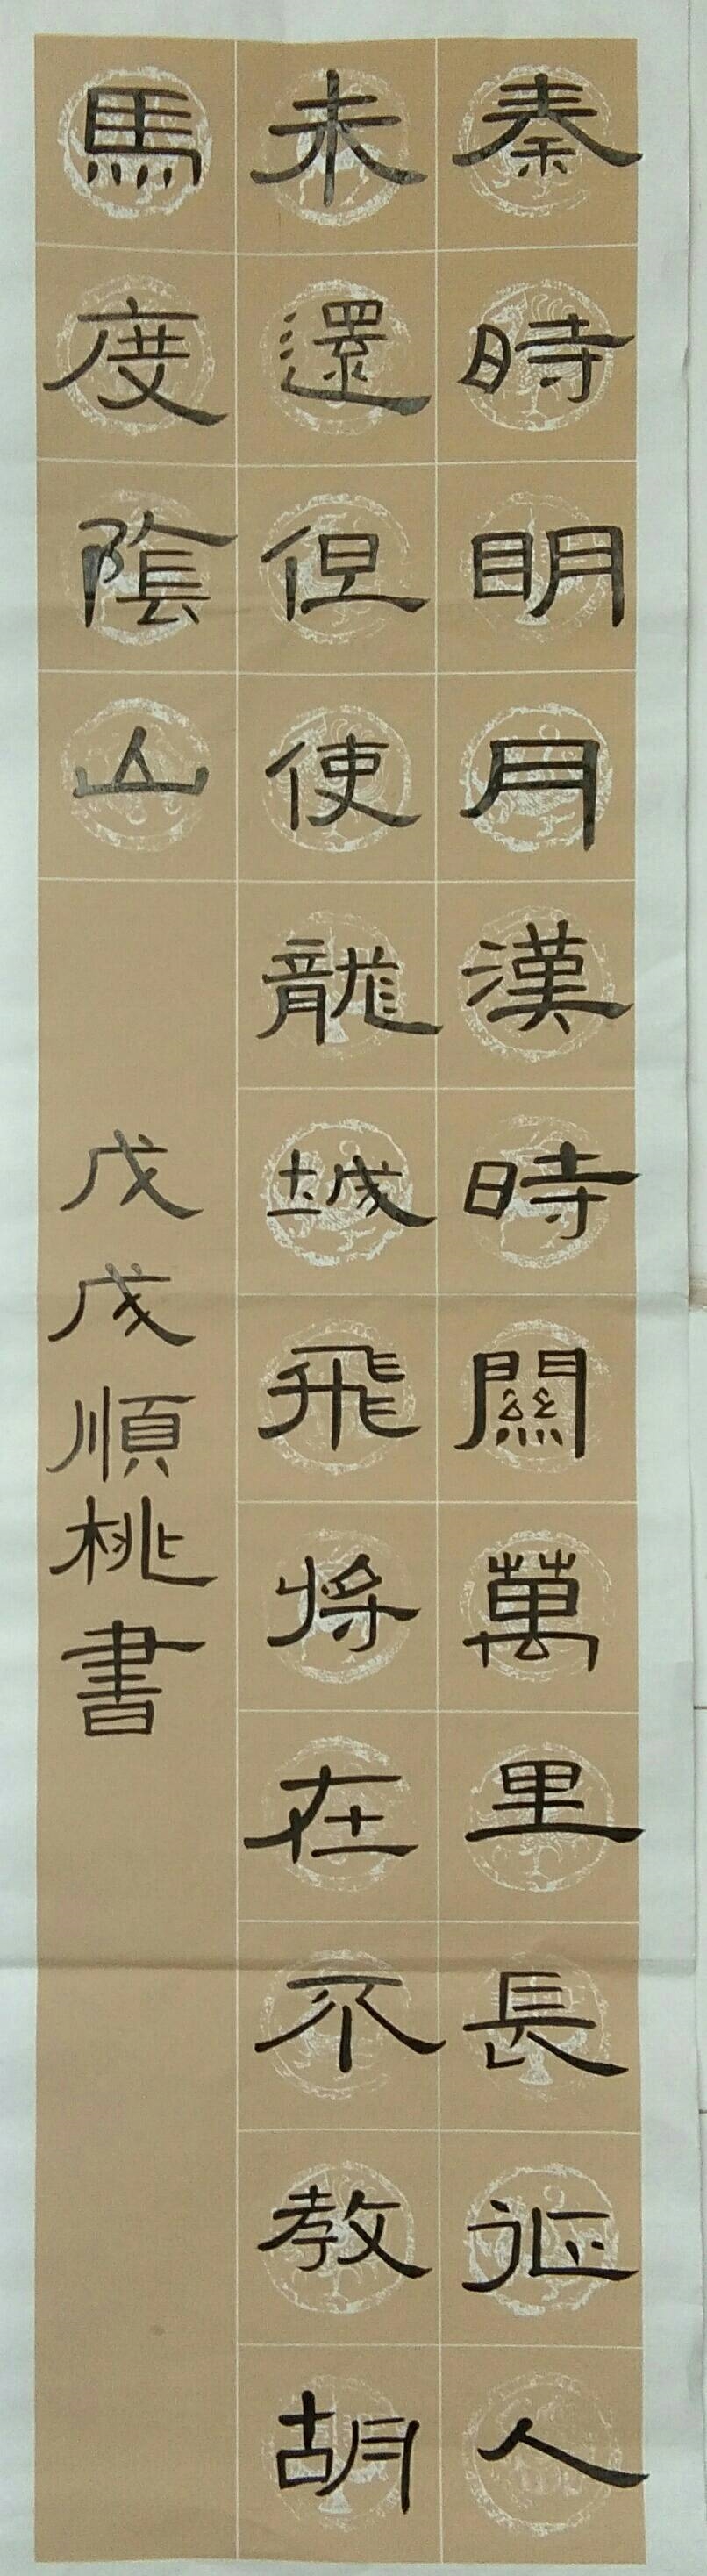 秦時明月漢時關萬里長征人
未還但使龍城飛將在不教胡
馬度陰山
戊戌順桃書